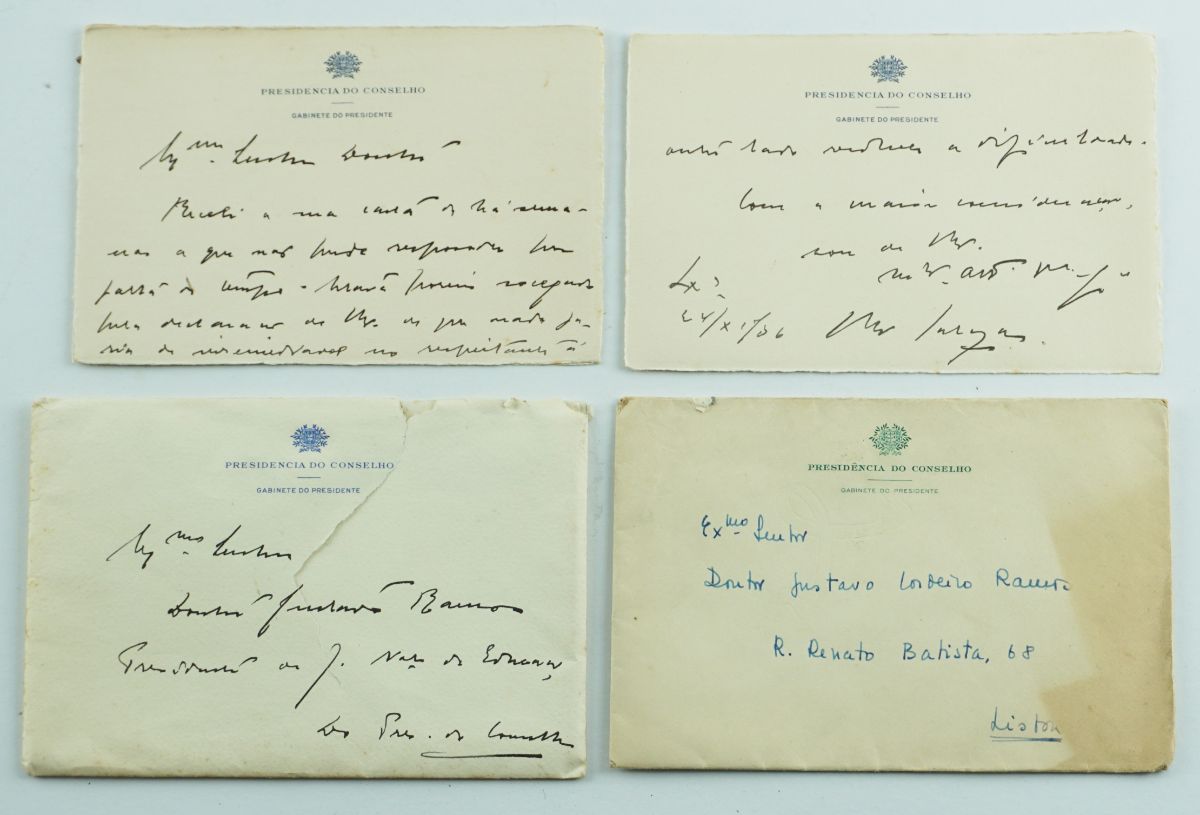 PRESIDENCIA DO CONSELHO
GABINETE DO PRESIDENTE
Senhor Doutor
Recebi a sua carta de há sema-
nas a que não pude responder por
falta de tempo.
pela declaração de V. de que nada ha-
via de irremediavel no respeitante á
PRESIDENCIA DO CONSELHO
GABINETE DO PRESIDENTE
outro lado a dificuldade.
Com a maior consideração,
sou de V.
Lxª
24/XI/36 Salazar.
PRESIDENCIA DO CONSELHO
GABINETE DO PRESIDENTE
Senhor
Doutor Gustavo Ramos
Presidente da J. Nac. de Educação,
Do Pres. do Conselho
PRESIDÊNCIA DO CONSELHO
GABINETE DO PRESIDENTE
Exmo. Senhor
Doutor Gustavo Cordeiro Ramos
R. Renato Batista, 68
Lisboa